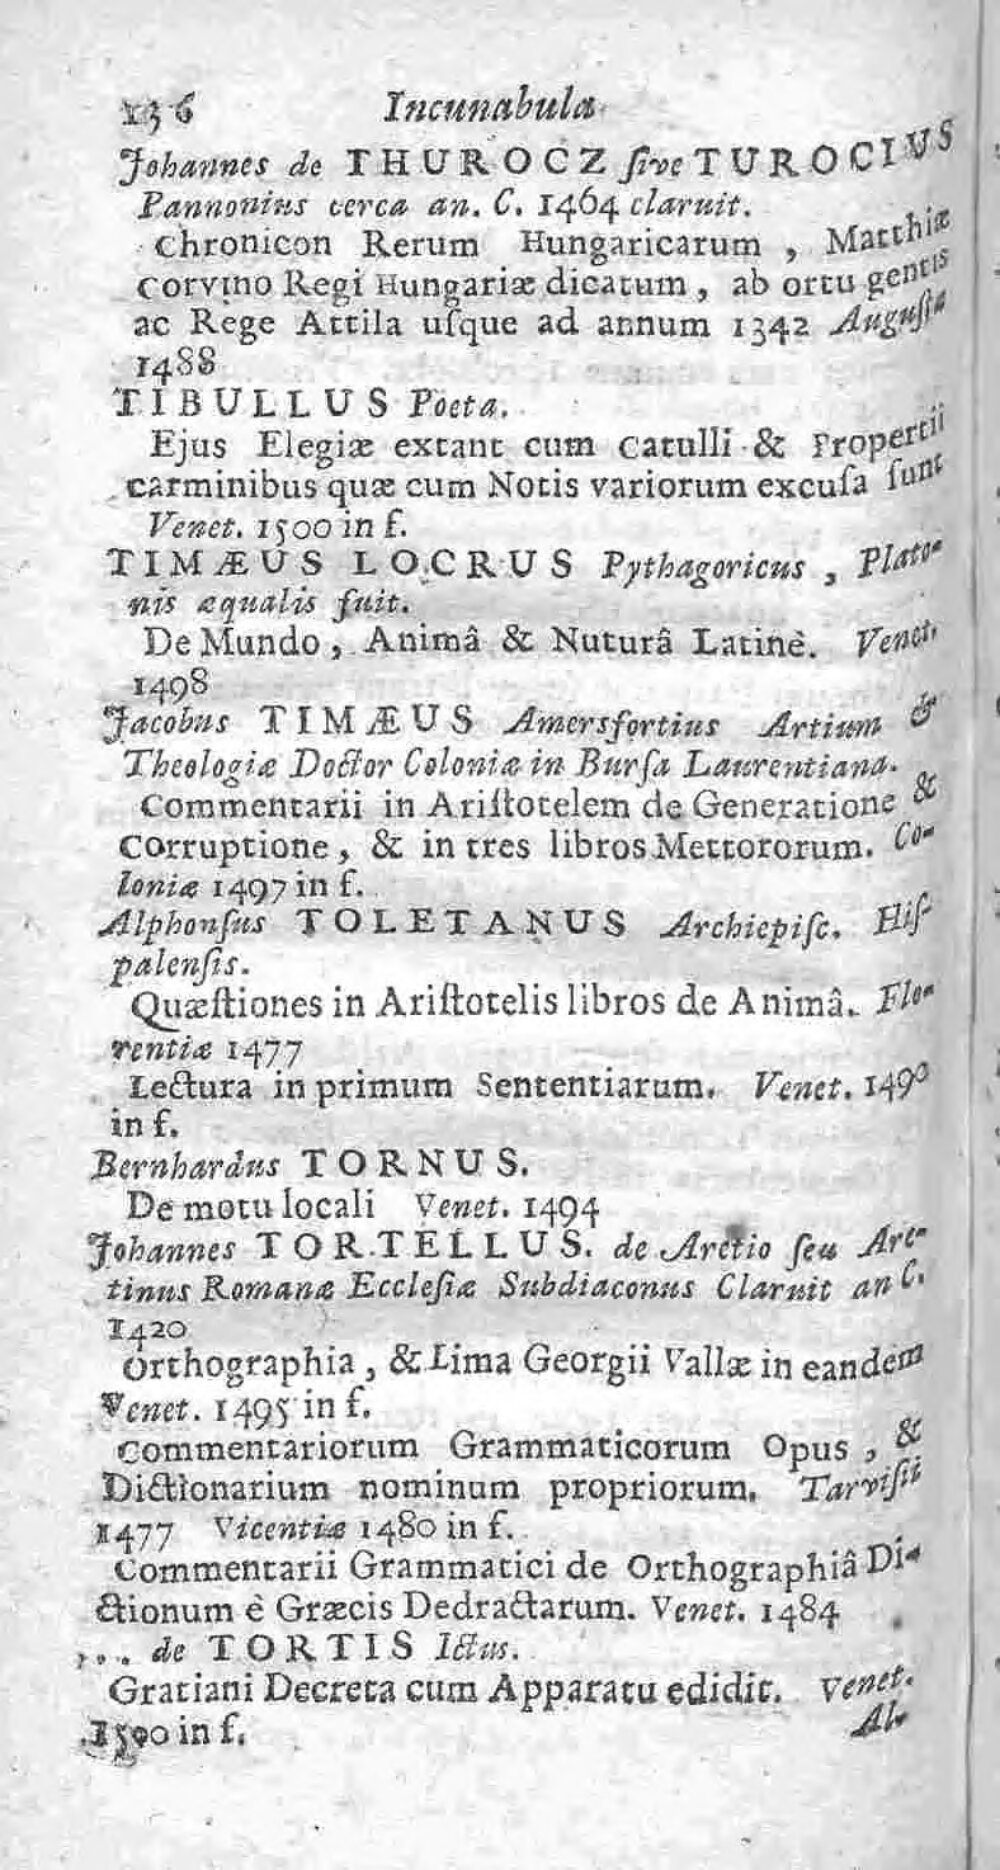 136 Incunabula
Johannes de THUROCZ ſive TUROCIUS
Pannonius cerca an. C. 1464 claruit.
Chronicon Rerum Hungaricarum, Matthiæ
Corvino Regi Hungariæ dicatum, ab ortu gentis
ac Rege Attila uſque ad annum 1342 Auguſtæ
1488
TIBULLUS Poeta.
Ejus Elegiæ extant cum Catulli & Propertii
carminibus quæ cum Notis variorum excuſa ſunt
Venet. 1500 in f.
TIMÆUS LOCRUS Pythagoricus, Plato-
nis æqualis fuit.
De Mundo, Animâ & Nuturâ Latinè. Venet.
1498
Jacobus TIMÆUS Amersfortius Artium &
Theologiæ Doctor Coloniæ in Burſa Laurentiana.
Commentarii in Ariſtotelem de Generatione &
Corruptione, & in tres libros Mettororum. Co-
loniæ 1497 in f.
Alphonſus TOLETANUS Archiepiſc. Hiſ-
palenſis.
Quæſtiones in Ariſtotelis libros de Animâ. Flo-
rentiæ 1477
Lectura in primum Sententiarum. Venet. 1490
in f.
Bernhardus TORNUS.
De motu locali Venet. 1494
Johannes TORTELLUS. de Aretio ſeu Are-
tinus Romanæ Eccleſiæ Subdiaconus Claruit an C.
1420
Orthographia, & Lima Georgii Vallæ in eandem
Venet. 1495 in f.
Commentariorum Grammaticorum Opus, &
Dictionarium nominum propriorum. Tarviſii
1477 Vicentiæ 1480 in f.
Commentarii Grammatici de Orthographiâ Di-
ctionum è Græcis Dedractarum. Venet. 1484
... de TORTIS Ictus.
Gratiani Decreta cum Apparatu edidit. Venet.
1500 in f.
Al-